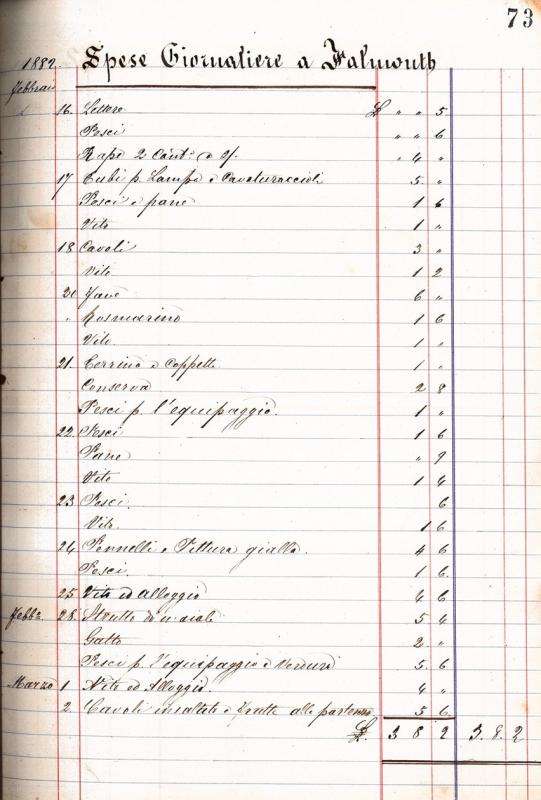 73
1882. Spese Giornaliere a Falmouth
Febbraio
16. Lettere £ " " 5.
Pesci " " 6
Rape 2 Cant: a 2/. " 4 "
17 Tubi p. Lampe e Cavaturaccioli 5. "
Pesci e pane 1 6
Vito 1 "
18 Cavoli 3 "
Vito 1 2
20 Fave 6 "
" Rosmarino 1 6
Vito 1 "
21. Cerrino e Coppette 1 "
Conserva 2 8
Pesci p. l'equipaggio. 1 "
22. Pesci 1 6
Pane " 9
Vito 1 4
23 Pesci. 6
Vito. 1 6
24 Pennelli e Pittura gialla. 4 6
Pesci. 1 6.
25 Vito ed alloggio 4 6
Febb. 28. Strutto di 5 4
Gatto 2 "
Pesci p. l'equipaggio e Verdure 5. 6
Marzo 1 Vito ed Alloggio. 4 "
2. Cavoli insalate e frutte alla partenza 5 6
£. 3 8 2 3. 8. 2